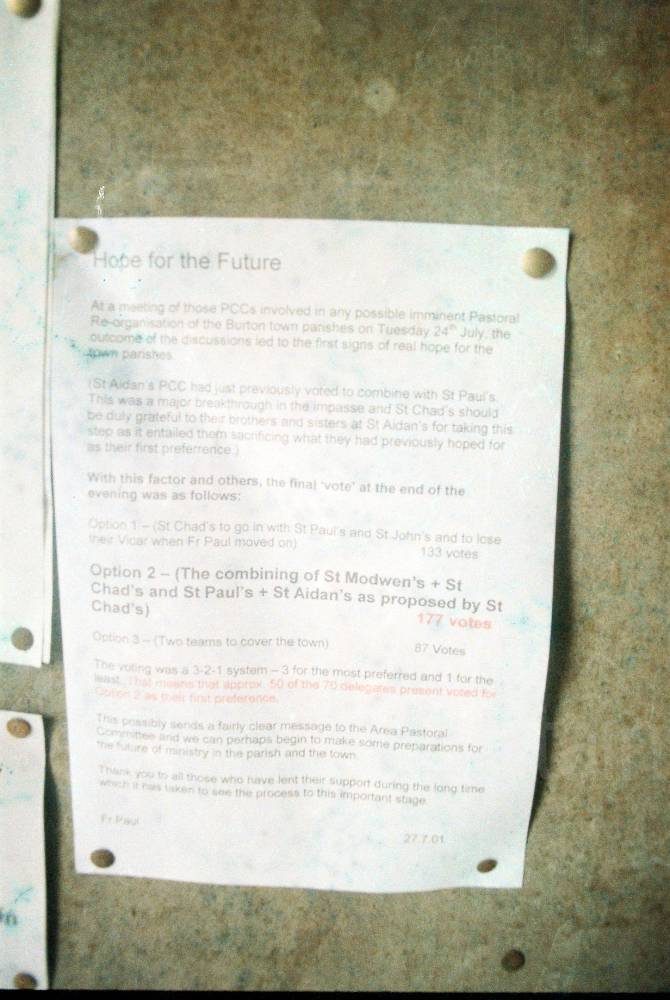 Hope for the Future
At a meeting of those PCCs involved in any possible imminent Pastoral
Re-organisation of the Burton town parishes on Tuesday 24th July, the
outcome of the discussions led to the first signs of real hope for the
town parishes.
(St Aidan's PCC had just previously voted to combine with St Paul's.
This was a major breakthrough in the impasse and St Chad's should
be duly grateful to their brothers and sisters at St Aidan's for taking this
step as it entailed them sacrificing what they had previously hoped for
as their first preferrence.)
With this factor and others, the final 'vote' at the end of the
evening was as follows:
Option 1 – (St Chad's to go in with St Paul's and St John's and to lose
their Vicar when Fr Paul moved on) 133 votes
Option 2 – (The combining of St Modwen's + St
Chad's and St Paul's + St Aidan's as proposed by St
Chad's) 177 votes
Option 3 – (Two teams to cover the town) 87 Votes
The voting was a 3-2-1 system – 3 for the most preferred and 1 for the
least. That means that approx. 50 of the 70 delegates present voted for
Option 2 as their first preference.
This possibly sends a fairly clear message to the Area Pastoral
Committee and we can perhaps begin to make some preparations for
the future of ministry in the parish and the town.
Thank you to all those who have lent their support during the long time
which it has taken to see the process to this important stage.
Fr Paul
27.7.01